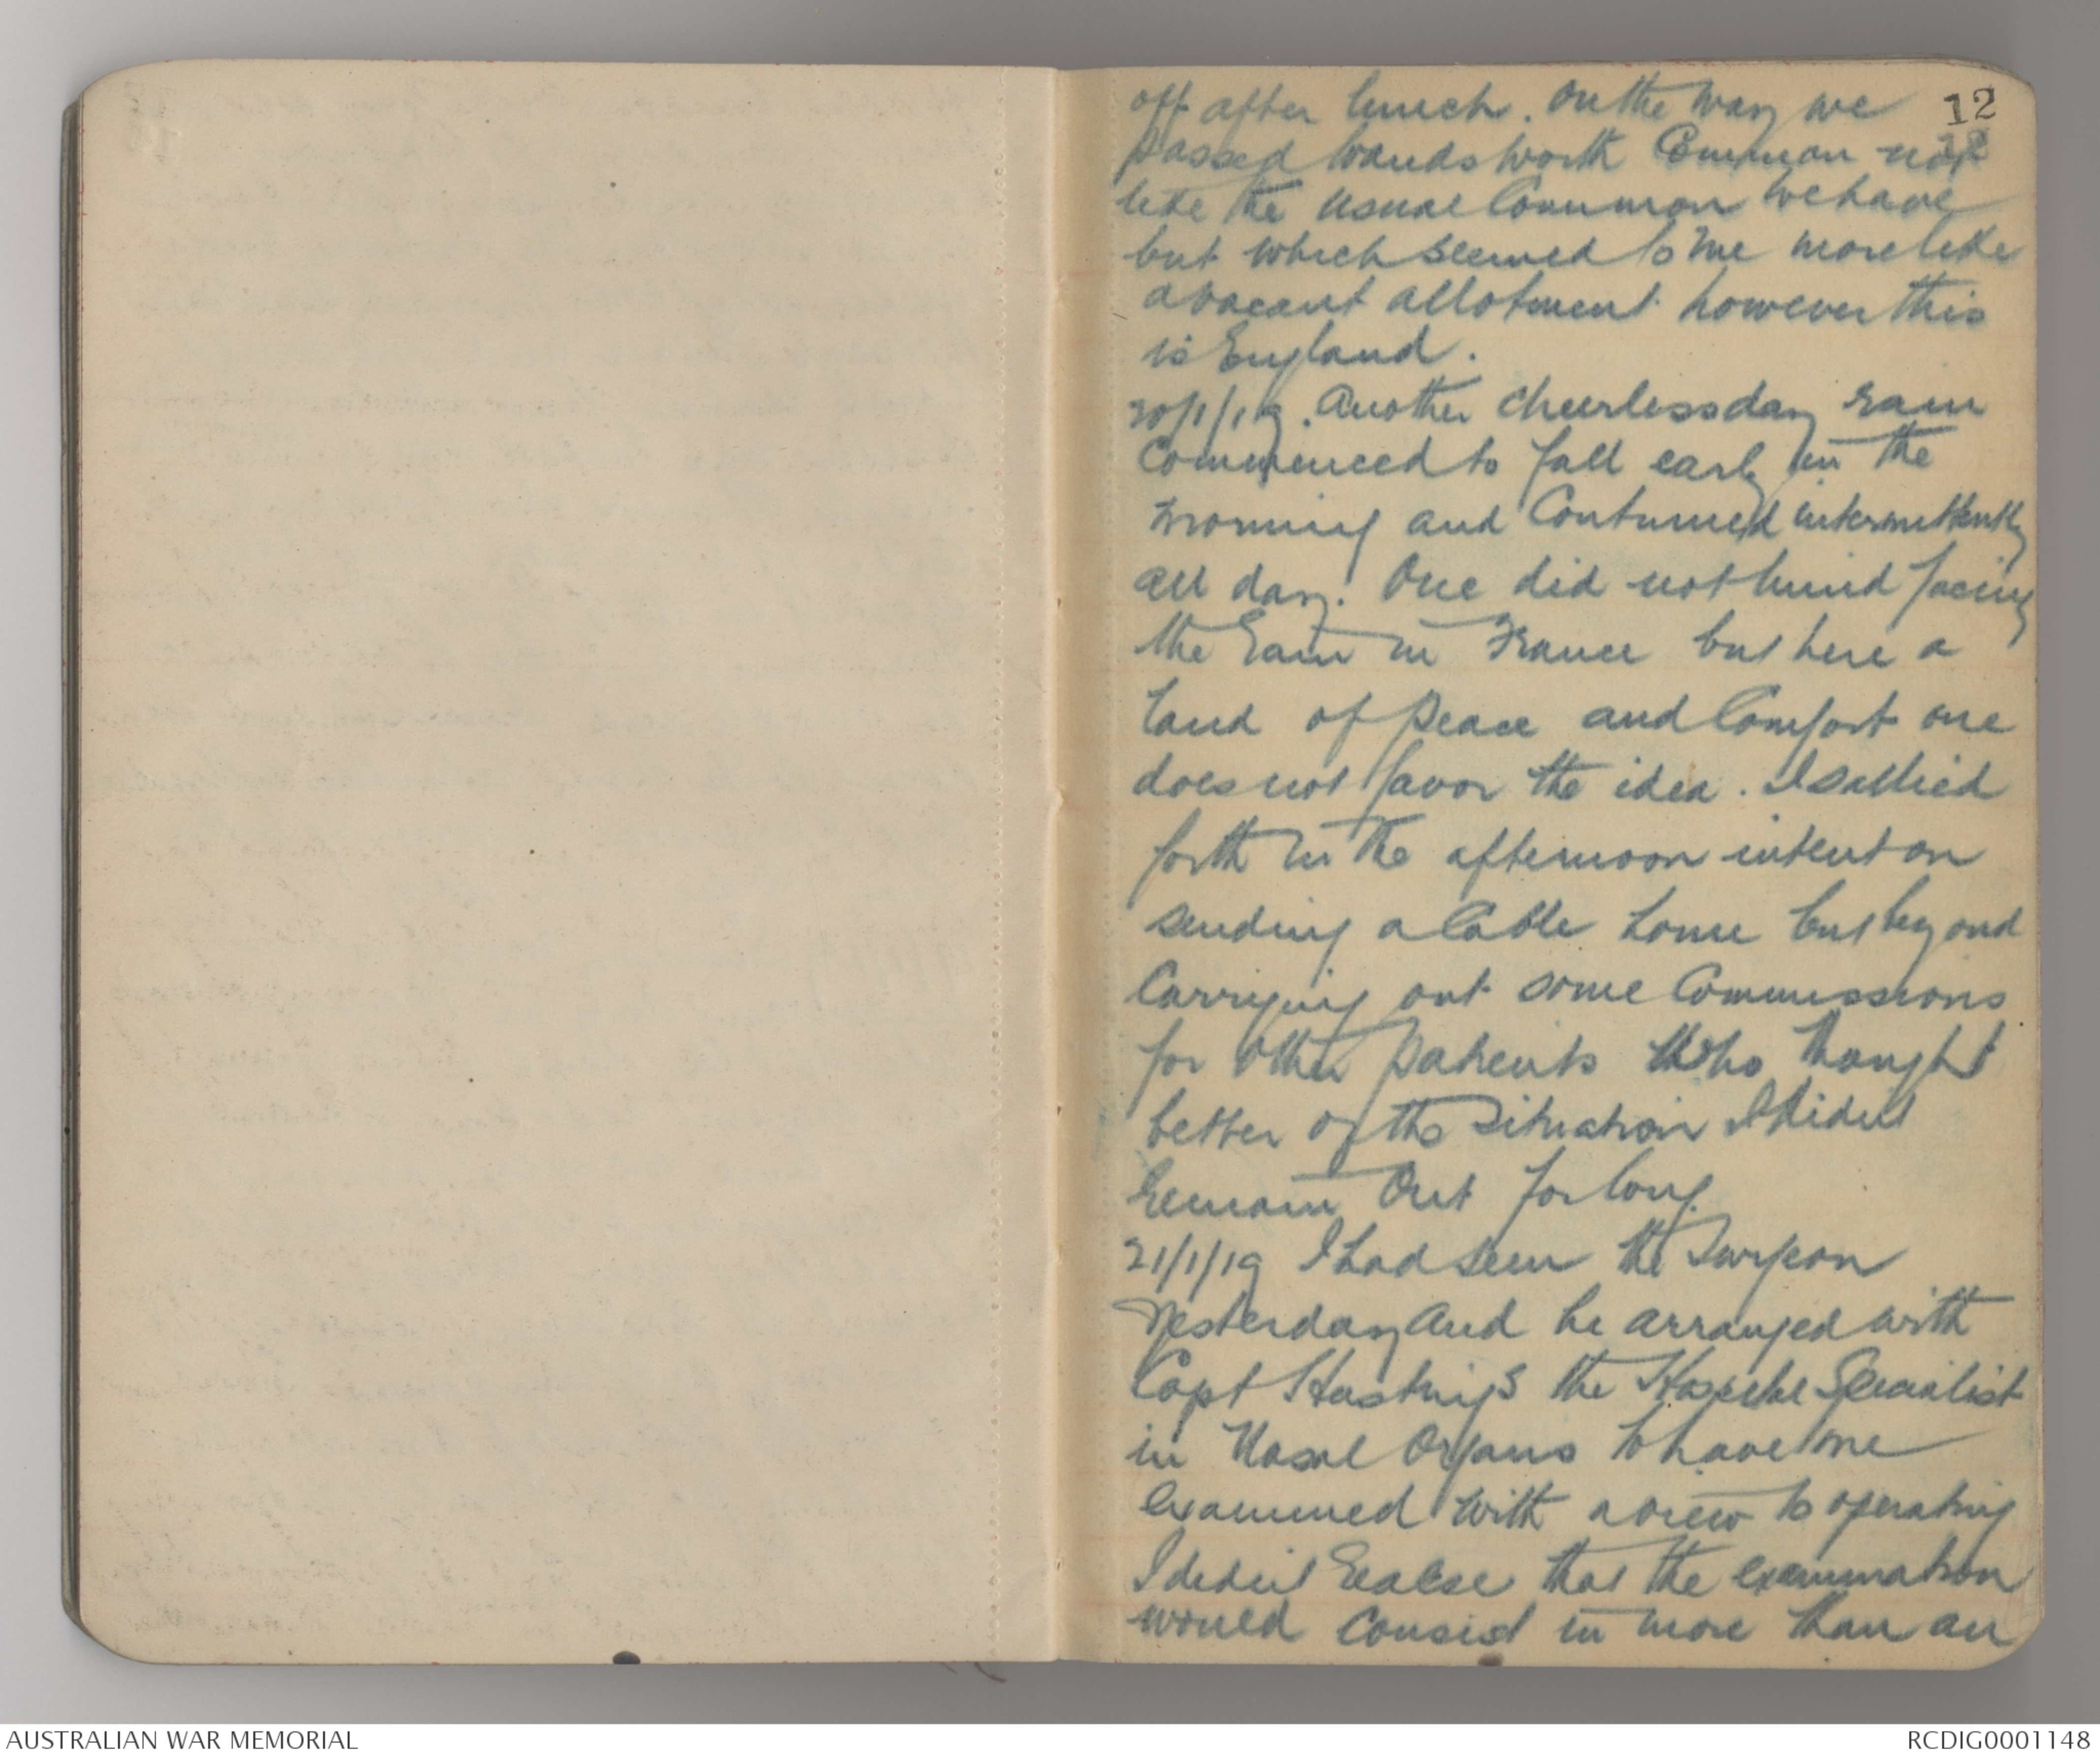 12
off after lunch. On the way we
passed Wandsworth Common not
like the usual Common we have
but which seemed to me more like
a vacant allotment however this
is England.
20/1/19. Another cheerless day rain
Commenced to fall early in the
morning and Continued intermittently
all day. One did not mind facing
the rain in France but here a
land of peace and Comfort one
does not favor the idea. I sallied
forth in the afternoon intent on
sending a Cable home but beyond
Carrying out some Commissions
for other patients who thought
better of the situation I didn't
remain out for long.
21/1/19 I had seen the Surgeon
Yesterday and he arranged with
Capt Hastings the Hospital Specialist
in Nasal Organs to have me
examined with a view to operating
I didn't realise that the examination
would consist in more than an
AUSTRALIAN WAR MEMORIAL
RCDIG0001148